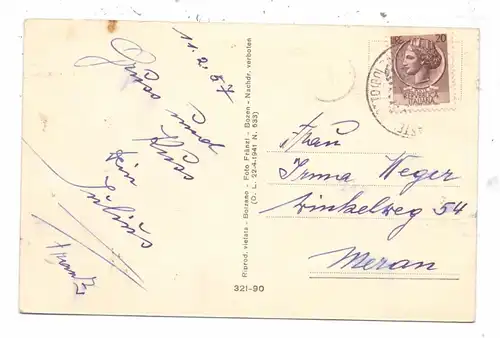 11.2.57
Gruss und
Kuss
Dein
Julius
Frantz
Riprod. vietata - Bolzano - Foto Fränzl - Bozen - Nachdr. verboten
(D. L. 22-4-1941 N. 633)
321-90
20
Frau
Irma Weger
Winkelweg 54
Meran